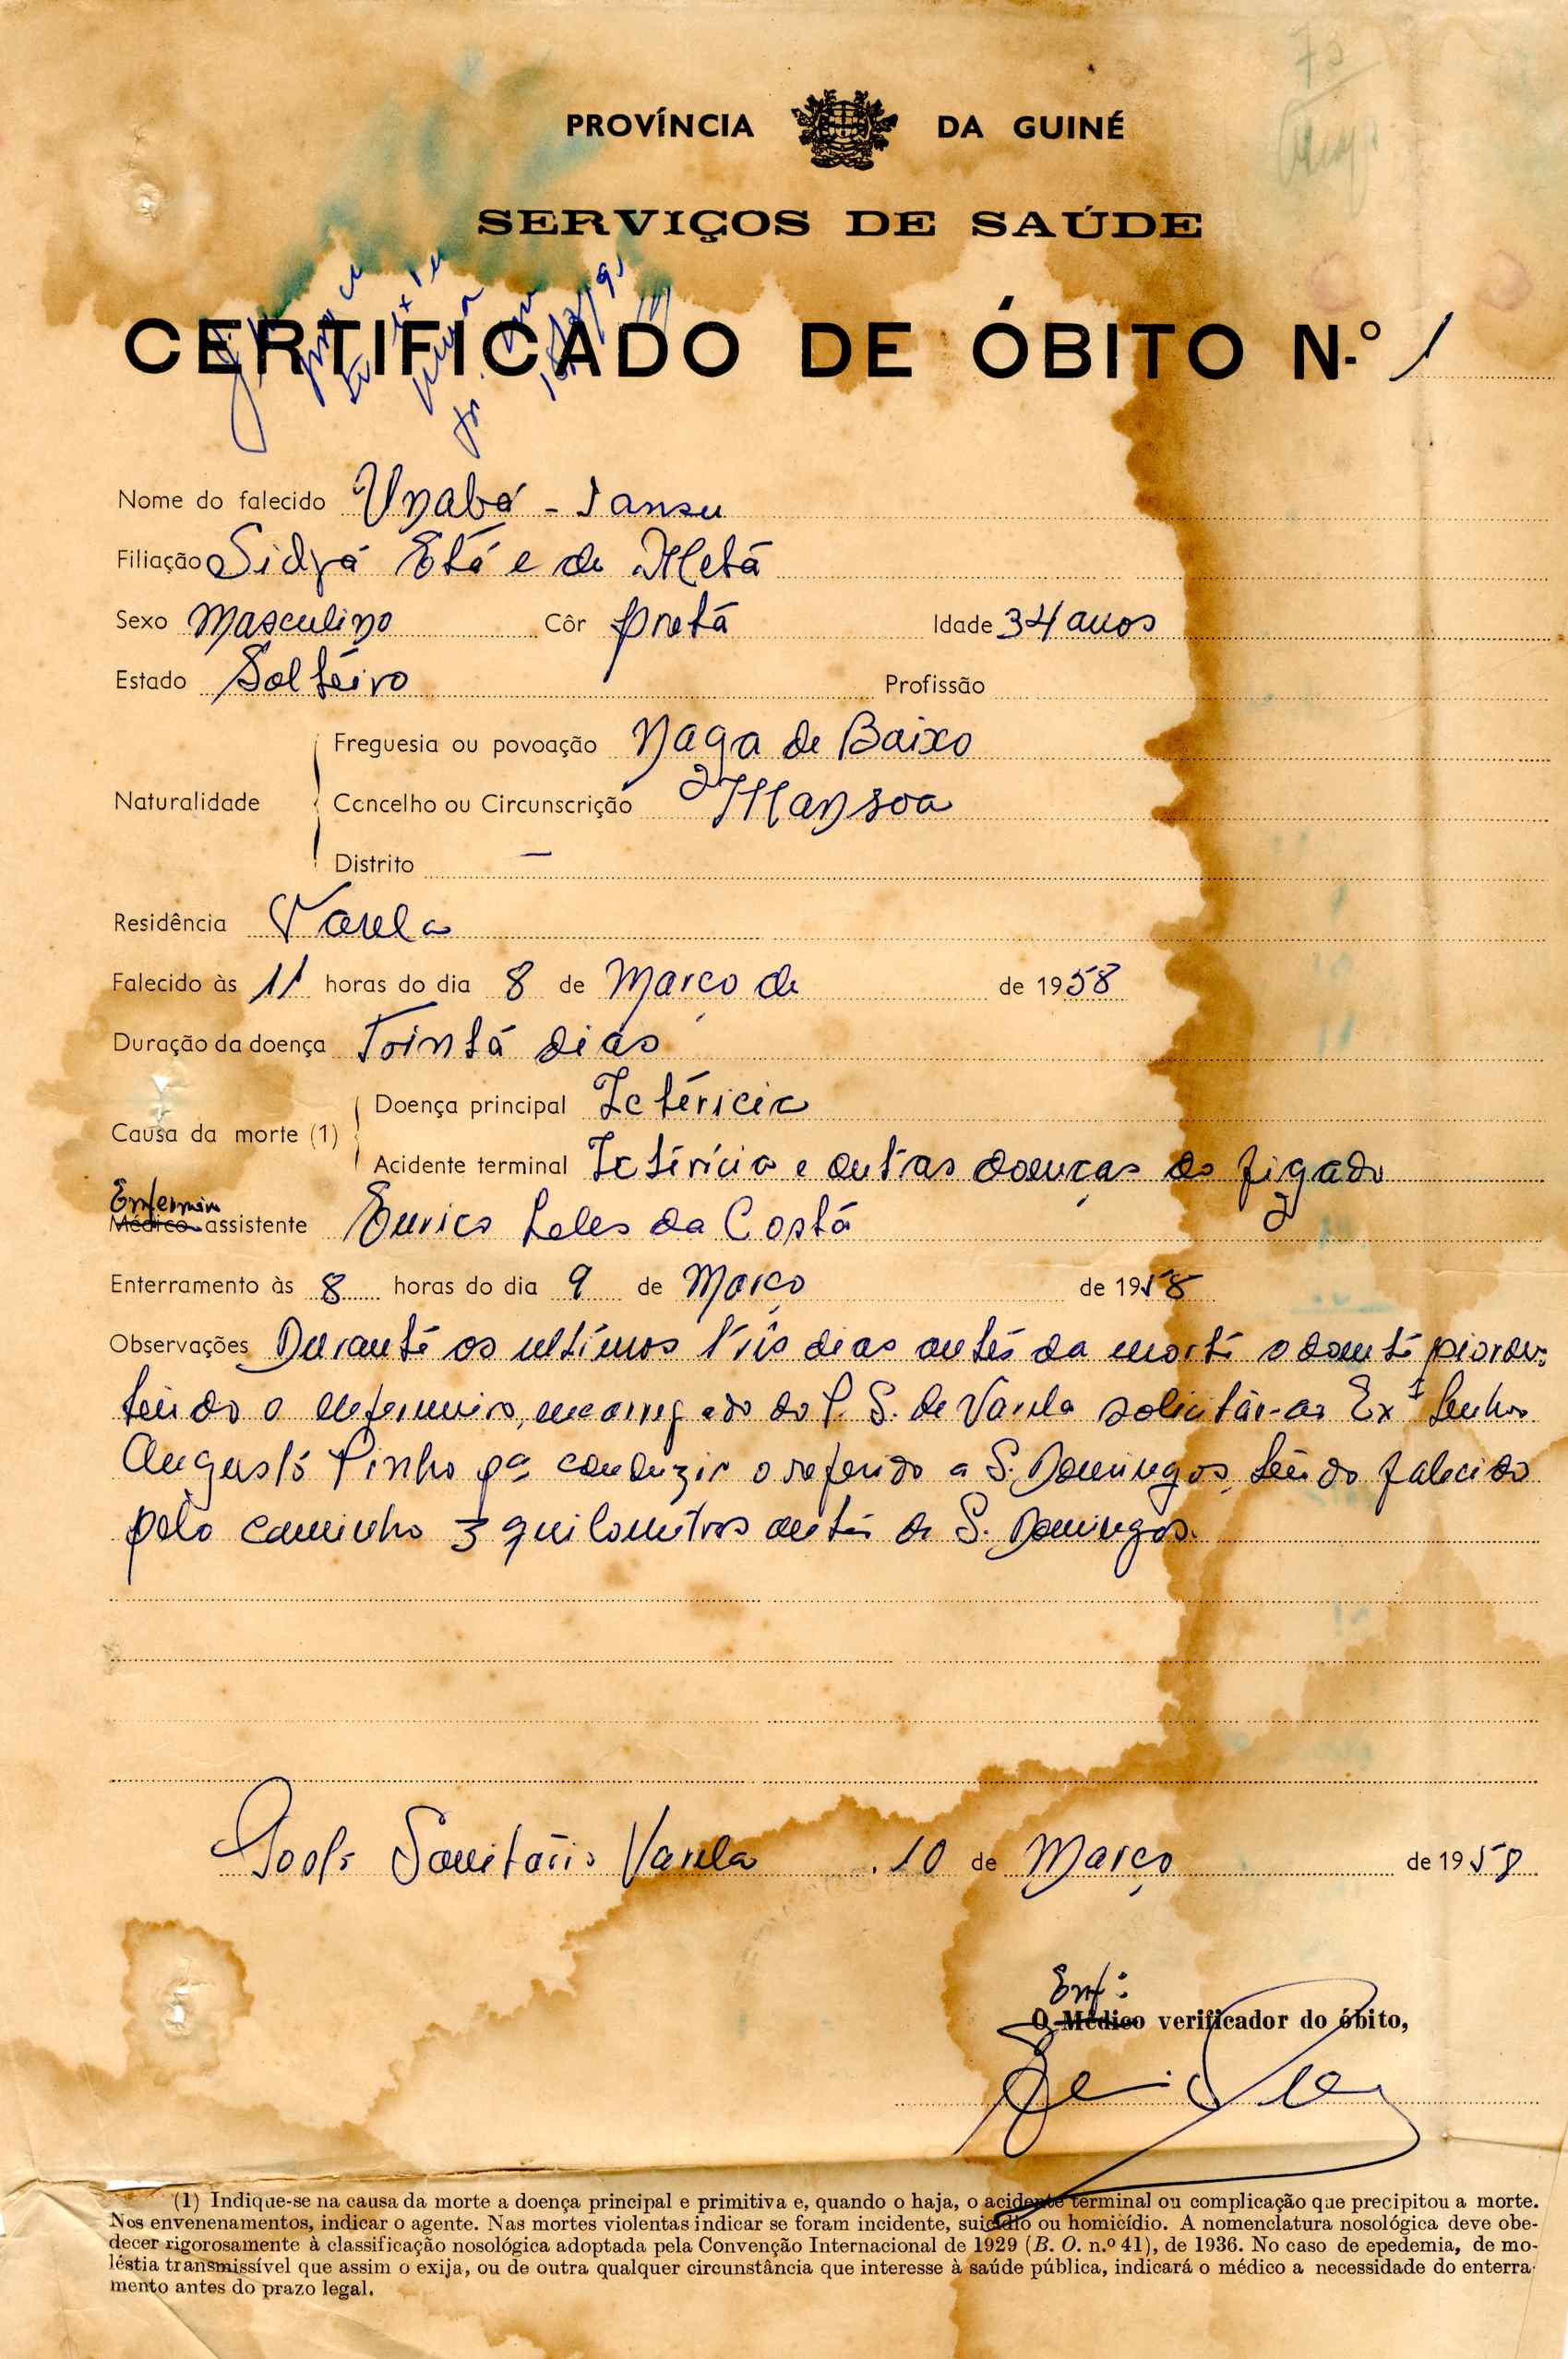 PROVÍNCIA DA GUINÉ
SERVIÇOS DE SAÚDE
CERTIFICADO DE ÓBITO N.º 1
Nome do falecido Unabá - Iansu
Filiação Sidyá Etá e de Metá
Sexo Masculino Côr preta Idade 34 anos
Estado Solteiro Profissão
Freguesia ou povoação Naga de Baixo
Naturalidade Concelho ou Circunscrição Mansoa
Distrito —
Residência Varela
Falecido às 11 horas do dia 8 de Março de de 1958
Duração da doença Trinta dias
Doença principal Icterícia
Causa da morte (1)
Acidente terminal Icterícia e outras doenças do figado
Enfermeiro
Médico assistente Eurico Teles da Costa
Enterramento às 8 horas do dia 9 de Março de 1958
Observações Durante os ultimos três dias antes da morte o doente piorou;
tendo o enfermeiro, encarregado do P. S. de Varela solicitar-ao Exº Senhor
Augusto Pinho pª conduzir o referido a S. Domingos, tendo falecido
pelo caminho 3 quilometros antes de S. Domingos.
Posto Sanitário Varela, 10 de Março de 1958
Enf.:
O Médico verificador do óbito,
(1) Indique-se na causa da morte a doença principal e primitiva e, quando o haja, o acidente terminal ou complicação que precipitou a morte.
Nos envenenamentos, indicar o agente. Nas mortes violentas indicar se foram incidente, suicídio ou homicídio. A nomenclatura nosológica deve obe-
decer rigorosamente à classificação nosológica adoptada pela Convenção Internacional de 1929 (B. O. n.º 41), de 1936. No caso de epedemia, de mo-
léstia transmissível que assim o exija, ou de outra qualquer circunstância que interesse à saúde pública, indicará o médico a necessidade do enterra-
mento antes do prazo legal.